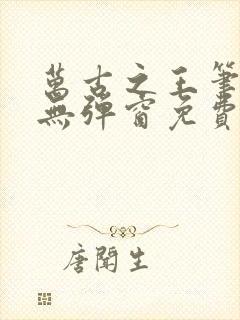 萬古之王筆
無彈窗免費
唐聞生